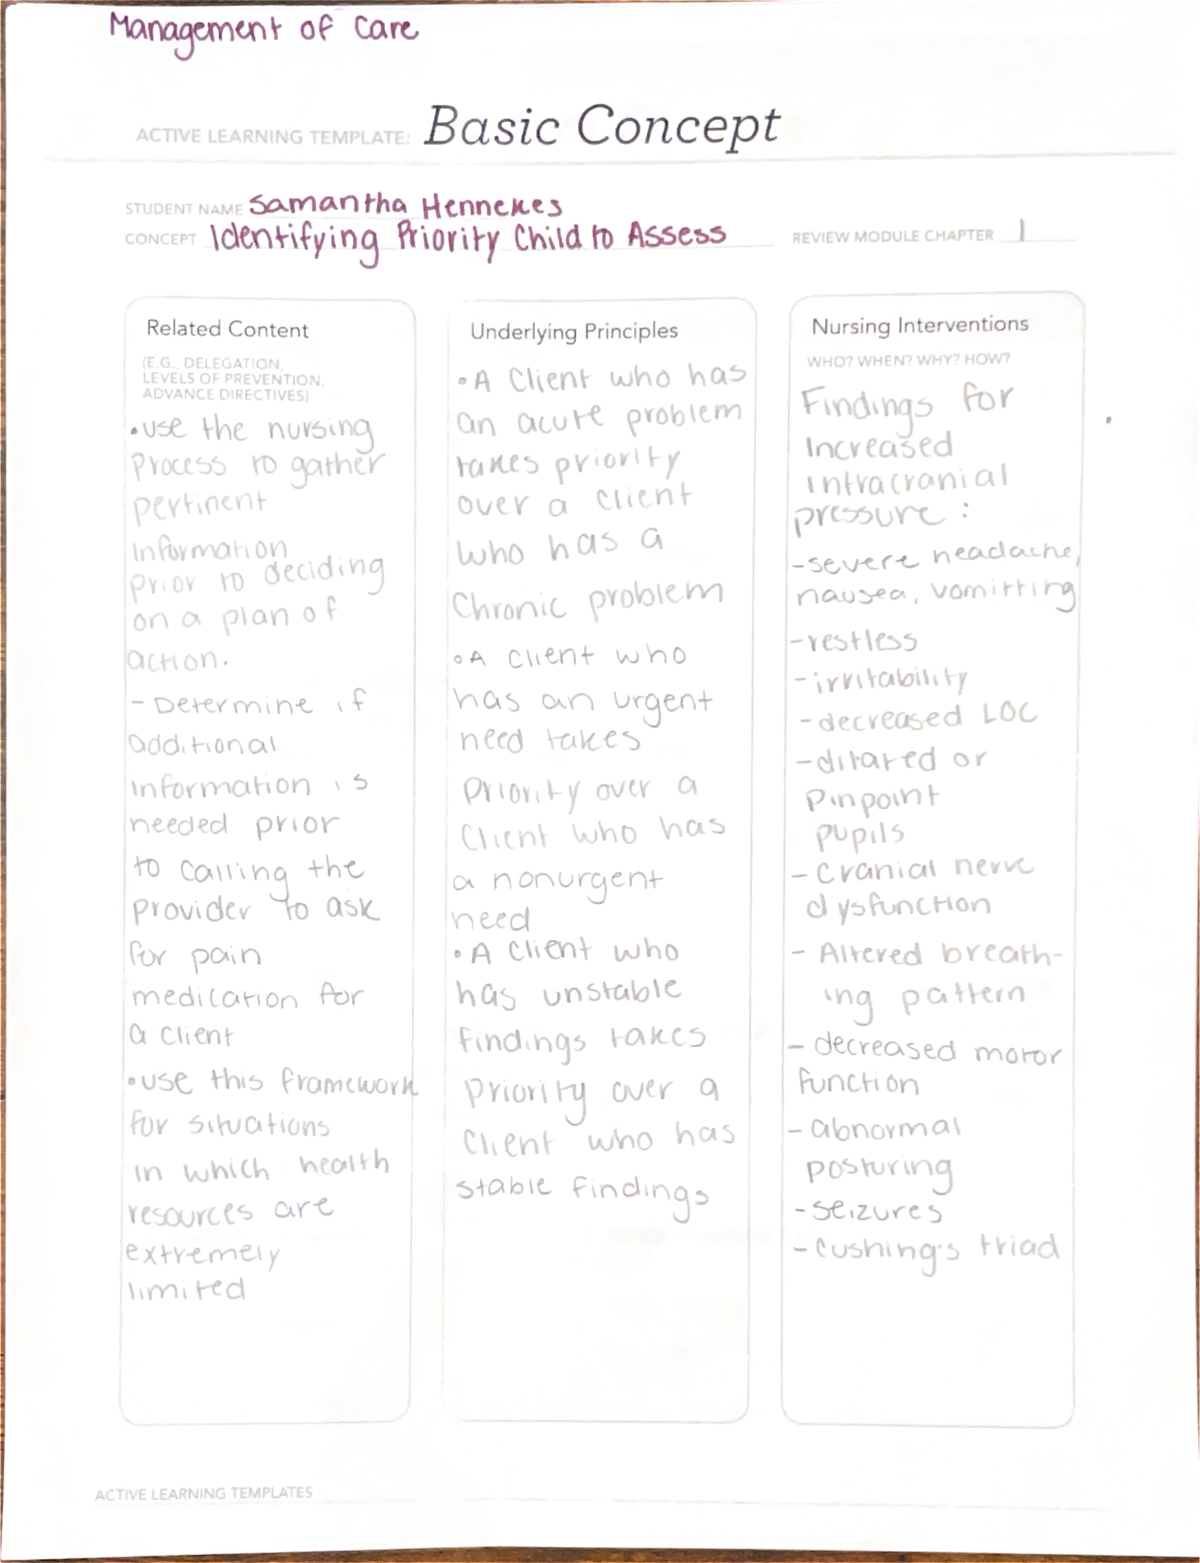 Management of Care
ACTIVE LEARNING TEMPLATE: Basic Concept
STUDENT NAME Samantha Hennekes
CONCEPT Identifying Priority Child to Assess
REVIEW MODULE CHAPTER 1
Related Content
(E.G., DELEGATION,
LEVELS OF PREVENTION,
ADVANCE DIRECTIVES)
•use the nursing
process to gather
pertinent
information
prior to deciding
on a plan of
action.
- Determine if
additional
information is
needed prior
to calling the
provider to ask
for pain
medication for
a client
•use this framework
for situations
in which health
resources are
extremely
limited
Underlying Principles
•A Client who has
an acute problem
takes priority
over a client
who has a
Chronic problem
•A client who
has an urgent
need takes
Priority over a
Client who has
a nonurgent
need
•A Client who
has unstable
findings takes
Priority over a
Client who has
stable findings
Nursing Interventions
WHO? WHEN? WHY? HOW?
Findings for
Increased
intracranial
pressure:
-severe headache,
nausea, vomitting
-restless
-irritability
-decreased LOC
-dilated or
Pinpoint
pupils
-cranial nerve
dysfunction
- Altered breath-
ing pattern
- decreased motor
function
-abnormal
posturing
-seizures
-cushing's triad
ACTIVE LEARNING TEMPLATES